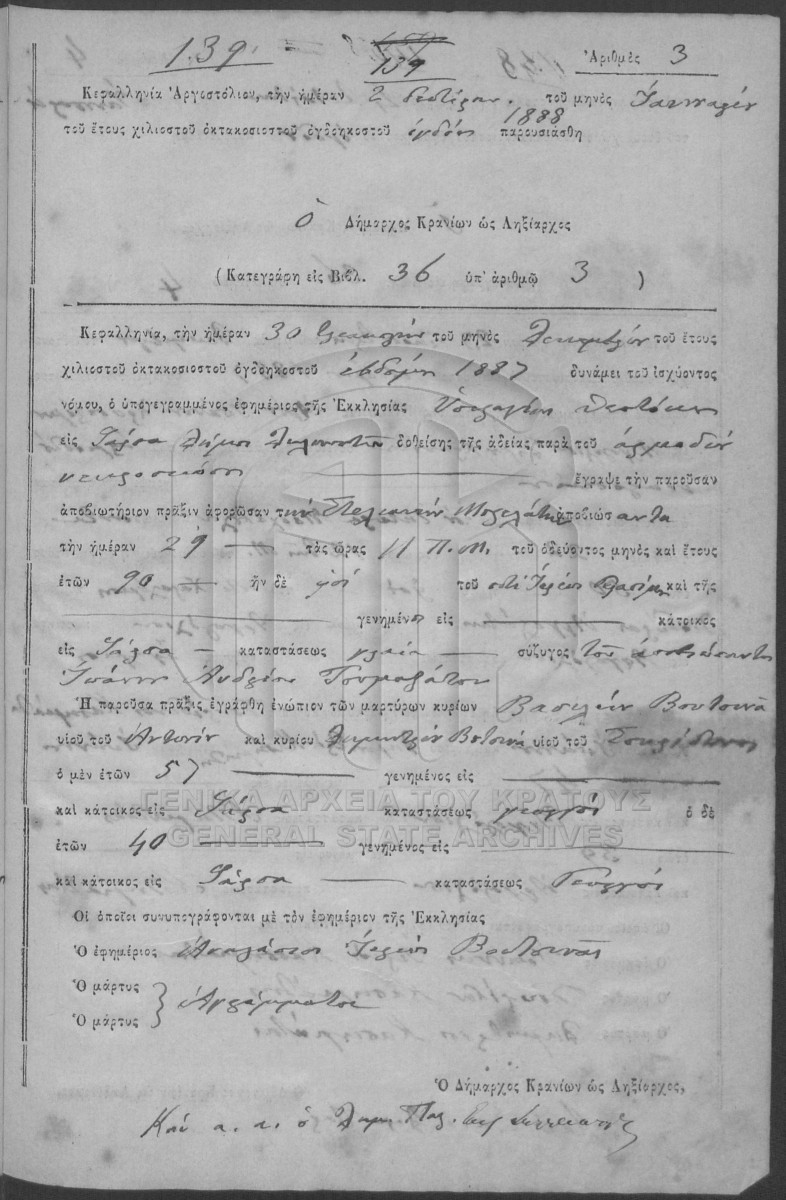 139.
139
Ἀριθμὸς 3
Κεφαλληνία Ἀργοστόλιον, τὴν ἡμέραν 2 δευτέραν. τοῦ μηνὸς Ἰαννουαρίου
1888
τοῦ ἔτους χιλιοστοῦ ὀκτακοσιοστοῦ ὀγδοηκοστοῦ ὀγδόου παρουσιάσθη
ὁ Δήμαρχος Κρανίων ὡς Ληξίαρχος
( Κατεγράφη εἰς Βιβλ. 36 ὑπ' ἀριθμῷ 3 )
Κεφαλληνία, τὴν ἡμέραν 30 τοῦ μηνὸς Δεκεμβρίου τοῦ ἔτους
χιλιοστοῦ ὀκτακοσιοστοῦ ὀγδοηκοστοῦ ἑβδόμου 1887 δυνάμει τοῦ ἰσχύοντος
νόμου, ὁ ὑπογεγραμμένος ἐφημέριος τῆς Ἐκκλησίας Ὑπεραγίου Θεοτόκου
εἰς δοθείσης τῆς ἀδείας παρὰ τοῦ ἁρμοδίου
νεκροσκόπου ἔγραψε τὴν παροῦσαν
ἀποβιωτήριον πρᾶξιν ἀφορῶσαν τὴν ἀποβιώσαντα
τὴν ἡμέραν 29 τὰς ὥρας 11 Π.Μ. τοῦ ὁδεύοντος μηνὸς καὶ ἔτους
ἐτῶν 90 ἦν δὲ τοῦ ποτὲ Ἱερέως καὶ τῆς
γενημένον εἰς κάτοικος
εἰς καταστάσεως σύζυγος τοῦ ἀποβιώσαντος
Ἰωάννου Ἀνδρέου
Ἡ παροῦσα πρᾶξις ἐγράφθη ἐνώπιον τῶν μαρτύρων κυρίων Βασιλείου Βουτσινᾶ
υἱοῦ τοῦ Ἀντωνίου καὶ κυρίου Δημητρίου Βουτσινᾶ υἱοῦ τοῦ Σπυρίδωνος
ὁ μὲν ἐτῶν 57 γενημένος εἰς
καὶ κάτοικος εἰς καταστάσεως γεωργοί ὁ δὲ
ΓΕΝΙΚΑ ΑΡΧΕΙΑ ΤΟΥ ΚΡΑΤΟΥΣ
GENERAL STATE ARCHIVES
ἐτῶν 40 γενημένος εἰς
καὶ κάτοικος εἰς καταστάσεως Γεωργοί
Οἱ ὁποῖοι συνυπογράφονται μὲ τὸν ἐφημέριον τῆς Ἐκκλησίας
Ὁ ἐφημέριος Ἱερεύς Βουτσινᾶς
Ὁ μάρτυς
Ἀγράμματοι
Ὁ μάρτυς
Ὁ Δήμαρχος Κρανίων ὡς Ληξίαρχος,